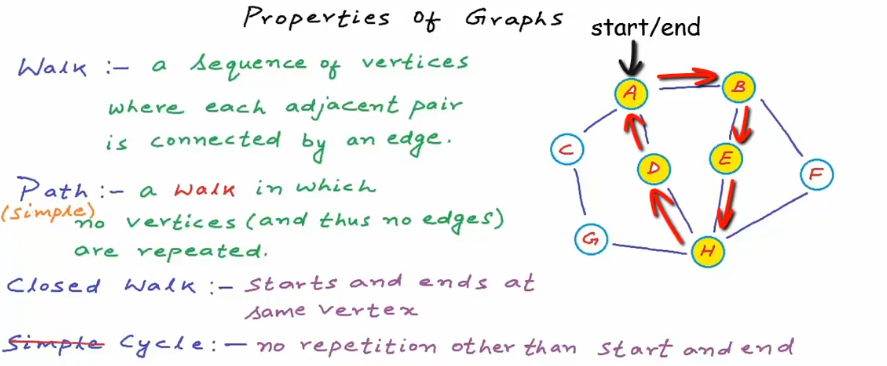 Properties of Graphs
start/end
Walk :- a sequence of vertices
where each adjacent pair
is connected by an edge.
Path :- a walk in which
(simple) no vertices (and thus no edges)
are repeated.
Closed Walk :- starts and ends at
same vertex
Simple Cycle :- no repetition other than start and end
A
B
C
D
E
F
G
H